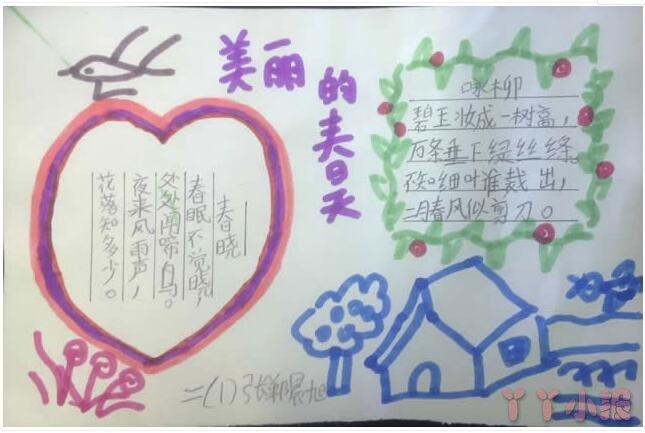 美丽
的春天
春晓
春眠不觉晓，
处处闻啼鸟。
夜来风雨声，
花落知多少。
咏柳
碧玉妆成一树高，
万条垂下绿丝绦。
不知细叶谁裁出，
二月春风似剪刀。
二(1)张
晨旭
丫丫小报